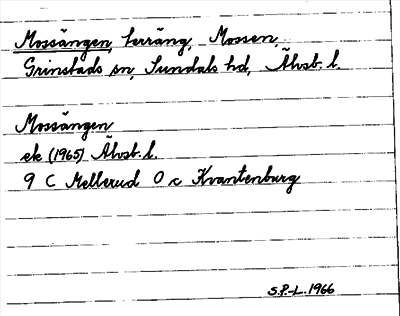 Mossängen, terräng, Mossen,
Grinstads sn, Sundals hd, Älvsb. l.
Mossängen
ek (1965) Älvsb. l.
9 C Mellerud O c Kvantenburg
S.P.-L. 1966